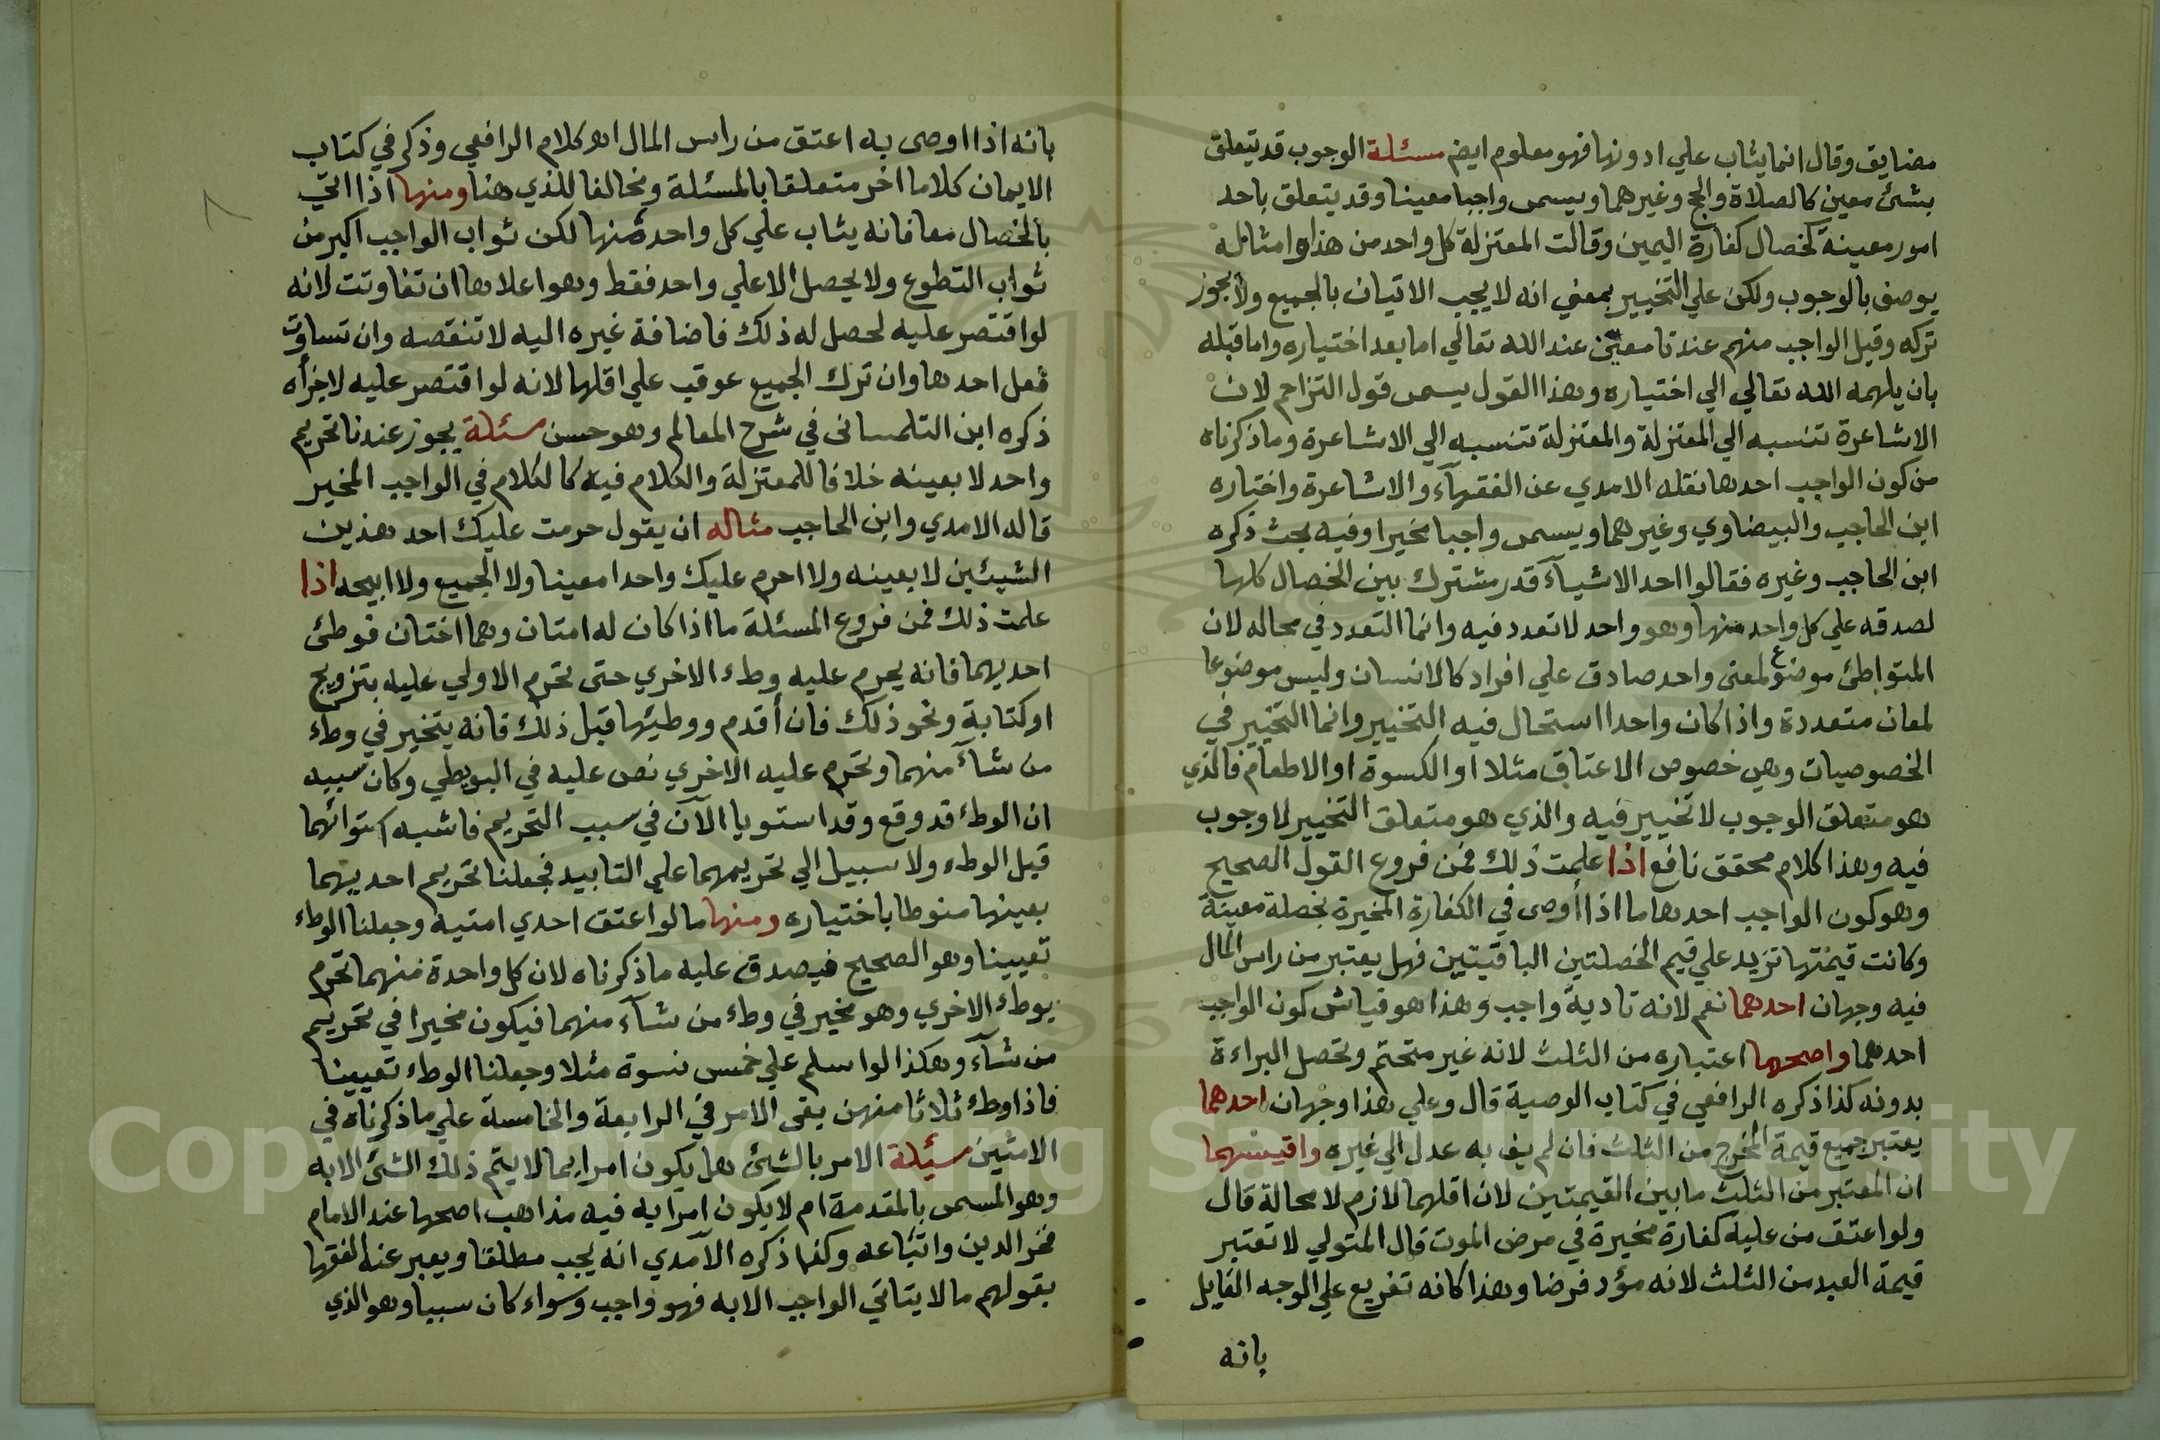 مضايق وقال انما يثاب علي ادونها فهو معلوم ايضم مسئلة الوجوب قد يتعلق
بشئ معين كالصلاة والحج وغيرهما ويسمى واجبا معينا وقد يتعلق باحد
امور معينة كخصال كفارة اليمين وقالت المعتزلة كل واحد من هذا وامثاله
يوصف بالوجوب ولكن علي التخيير بمعني انه لا يجب الاتيان بالجميع ولا يجوز
تركه وقيل الواجب منهم عندنا معين عند الله تعالي اما بعد اختياره واما قبله
بان يلهمه الله تعالي الي اختياره وهذا القول يسمى قول التزاحم لان
الاشاعرة تنسبه الي المعتزلة والمعتزلة تنسبه الي الاشاعرة وما ذكرناه
من كون الواجب احدها نقله الامدي عن الفقهآء والاشاعرة واختاره
ابن الحاجب والبيضاوي وغيرهما ويسمى واجبا مخيرا وفيه بحث ذكره
ابن الحاجب وغيره فقالوا احد الاشيآء قدر مشترك بين الخصال كلها
لصدقه علي كل واحد منها وهو واحد لا تعدد فيه وانما التعدد في محاله لان
المتواطئ موضوع لمعنى واحد صادق علي افراد كالانسان وليس موضوعا
لمعان متعددة واذا كان واحدا استحال فيه التخيير وانما التخيير في
الخصوصيات وهى خصوص الاعتاق مثلا او الكسوة او الاطعام فالذي
هو متعلق الوجوب لا تخيير فيه والذي هو متعلق التخيير لا وجوب
فيه وهذا كلام محقق نافع اذا علمت ذلك فمن فروع القول الصحيح
وهو كون الواجب احدها ما اذا أوصى في الكفارة المخيرة بخصلة معينة
وكانت قيمتها تزيد علي قيم الخصلتين الباقيتين فهل يعتبر من راس المال
فيه وجهان احدهما نعم لانه تادية واجب وهذا هو قياس كون الواجب
احدهما واصحهما اعتباره من الثلث لانه غير متحتم وتحصل البراءة
بدونه كذا ذكره الرافعي في كتاب الوصية قال وعلي هذا وجهان احدهما
يعتبر جميع قيمة المخرج من الثلث فان لم يف به عدل الي غيره واقيسهما
ان المعتبر من الثلث ما بين القيمتين لان اقلهما لازم لا محالة قال
ولو اعتق من عليه كفارة مخيرة في مرض الموت قال المتولي لا تعتبر
قيمة العبد من الثلث لانه مؤد فرضا وهذا كانه تفريع علي الوجه القايل
بانه
بانه اذا اوصى به اعتق من راس المال اه كلام الرافعي وذكر في كتاب
الايمان كلاما اخر متعلقا بالمسئلة ومخالفا للذي هنا ومنها اذا اتي
بالخصال معا فانه يثاب علي كل واحدة منها لكن ثواب الواجب اكبر من
ثواب التطوع ولا يحصل الا علي واحد فقط وهو اعلاها ان تفاوتت لانه
لو اقتصر عليه لحصل له ذلك فاضافة غيره اليه لا تنقصه وان تساوت
فعل احدها وان ترك الجميع عوقب علي اقلها لانه لو اقتصر عليه لاجزأه
ذكره ابن التلمسانى في شرح المعالم وهو حسن مسئلة يجوز عندنا تحريم
واحد لا بعينه خلافا للمعتزلة والكلام فيه كالكلام في الواجب المخير
قاله الامدي وابن الحاجب مثاله ان يقول حرمت عليك احد هذين
الشيئين لا بعينه ولا احرم عليك واحدا معينا ولا الجميع ولا ابيحه اذا
علمت ذلك فمن فروع المسئلة ما اذا كان له امتان وهما اختان فوطئ
احديهما فانه يحرم عليه وطء الاخري حتى تحرم الاولي عليه بتزويج
او كتابة ونحو ذلك فان أقدم ووطيئها قبل ذلك فانه يتخير في وطء
من شآء منهما وتحرم عليه الاخري نص عليه في البويطي وكان سببه
ان الوطء قد وقع وقد استويا الآن في سبب التحريم فاشبه استوائهما
قبل الوطء ولا سبيل الي تحريمهما علي التابيد فجعلنا تحريم احديهما
بعينها منوطا باختياره ومنها ما لو اعتق احدي امتيه وجعلنا الوطء
تعيينا وهو الصحيح فيصدق عليه ما ذكرناه لان كل واحدة منهما تحرم
بوطء الاخري وهو مخير في وطء من شآء منهما فيكون مخيرا في تحريم
من شآء وهكذا لو اسلم علي خمس نسوة مثلا وجعلنا الوطء تعيينا
فاذا وطء ثلاثا منهن بقى الامر في الرابعة والخامسة علي ما ذكرناه في
الامتين مسئلة الامر بالشئ هل يكون امرا بما لا يتم ذلك الشئ الا به
وهو المسمى بالمقدمة ام لا يكون امرا به فيه مذاهب اصحها عند الامام
فخر الدين واتباعه وكذا ذكره الآمدي انه يجب مطلقا ويعبر عنه الفقها
بقولهم ما لا يتاتي الواجب الا به فهو واجب وسواء كان سببا وهو الذي